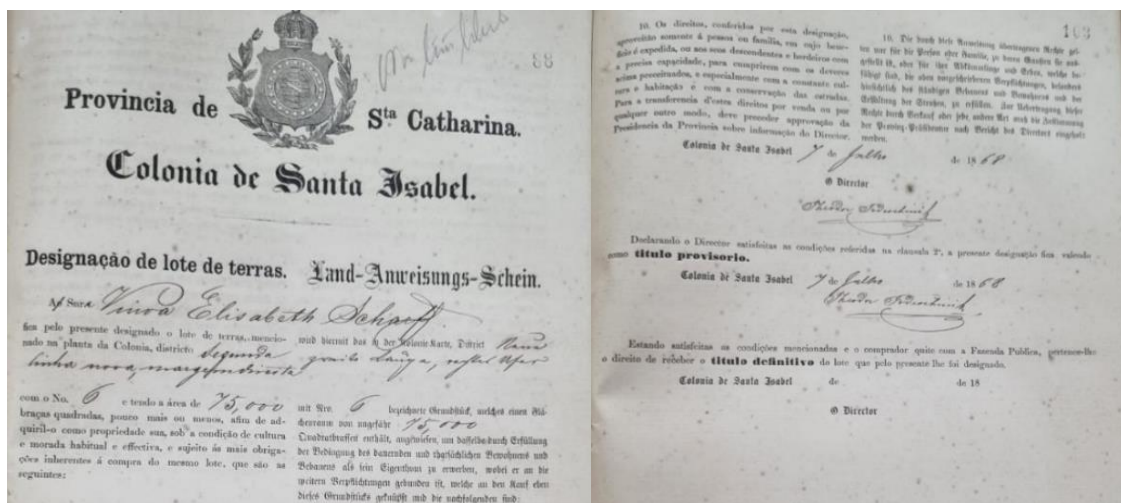 88
Provincia de Sta Catharina.
Colonia de Santa Isabel.
Designação de lote de terras. Land-Anweisungs-Schein.
A Snra Viuva Elisabeth Scharff
fica pelo presente designado o lote de terras, mencio-
nado na planta da Colonia, districto Segunda
linha nova, margem direita
com o No. 6 e tendo a área de 75,000
braças quadradas, pouco mais ou menos, afim de ad-
quiril-o como propriedade sua, sob a condição de cultura
e morada habitual e effectiva, e sujeito ás mais obriga-
ções inherentes á compra do mesmo lote, que são as
seguintes:
wird hiermit das in der Kolonie-Karte, District Neue
zweite Linha, rechtes Ufer
mit Nro. 6 bezeichnete Grundstück, welches einen Flä-
chenraum von ungefähr 75,000
Quadratbrassen enthält, angewiesen, um dasselbe durch Erfüllung
der Bedingung des dauernden und thatsächlichen Bewohnens und
Bebauens als sein Eigenthum zu erwerben, wobei er an die
weitern Verpflichtungen gebunden ist, welche an den Kauf eben
dieses Grundstücks geknüpft und die nachfolgenden sind:
103
10. Os direitos, conferidos por esta designação,
aproveitão somente á pessoa ou familia, em cujo bene-
ficio é expedida, ou aos seus descendentes e herdeiros com
a precisa capacidade, para cumprirem com os deveres
acima preceituados, e especialmente com a constante cul-
tura e habitação e com a conservação das estradas.
Para a transferencia d'estes direitos por venda ou por
qualquer outro modo, deve preceder approvação da
Presidencia da Provincia sobre informação do Director.
10. Die durch diese Anweisung übertragenen Rechte gel-
ten nur für die Person oder Familie, zu deren Gunsten sie aus-
gestellt ist, oder für ihre Abkömmlinge und Erben, welche be-
fähigt sind, die oben vorgeschriebenen Verpflichtungen, besonders
hinsichtlich des ständigen Bebauens und Bewohnens und der
Erhaltung der Strassen, zu erfüllen. Zur Uebertragung dieser
Rechte durch Verkauf oder jede andere Art muß die Zustimmung
der Provinz-Präsidentur nach Bericht des Directors eingeholt
werden.
Colonia de Santa Isabel 7 de Julho de 1868
O Director
Theodor Todeschini
Declarando o Director satisfeitas as condições referidas na clausula 2ª, a presente designação fica valendo
como titulo provisorio.
Colonia de Santa Isabel 7 de Julho de 1868
Theodor Todeschini
Estando satisfeitas as condições mencionadas e o comprador quite com a Fazenda Publica, pertence-lhe
o direito de receber o titulo definitivo do lote que pelo presente lhe foi designado.
Colonia de Santa Isabel de de 18
O Director